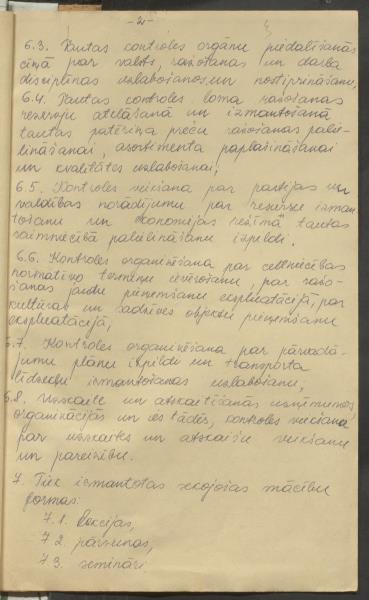 -2-
6.3. Tautas kontroles orgānu piedalīšanās
cīņā par valsts, ražošanas un darba
disciplīnas uzlabošanos un nostiprināšanu,
6.4. Tautas kontroles loma ražošanas
rezervju atklāšanā un izmantošanā
tautas patēriņa preču ražošanas palie-
lināšanai, asortimenta paplašināšanai
un kvalitātes uzlabošanai;
6.5. Kontroles veikšana par partijas un
valdības norādījumu par resursu izman-
tošanu un ekonomijas režīmā tautas
saimniecībā palielināšanu izpildi.
6.6. Kontroles organizēšana par celtniecības
normatīvo termiņu ievērošanu, par ražo-
šanas jaudu pieņemšanu ekspluatācijā, par
kultūras un sadzīves objektu pieņemšanu
ekspluatācijā,
6.7. Kontroles organizēšana par pārvadā-
jumu plānu izpildi un transporta
līdzekļu izmantošanas uzlabošanu,
6.8. Uzskaite un atskaitīšanās uzņēmumos,
organizācijās un iestādēs, kontroles veikšana
par uzskaites un atskaišu veikšanu
un pareizību.
7. Tiek izmantotas sekojošas mācību
formas:
7.1. lekcijas,
7.2. pārrunas,
7.3. semināri.